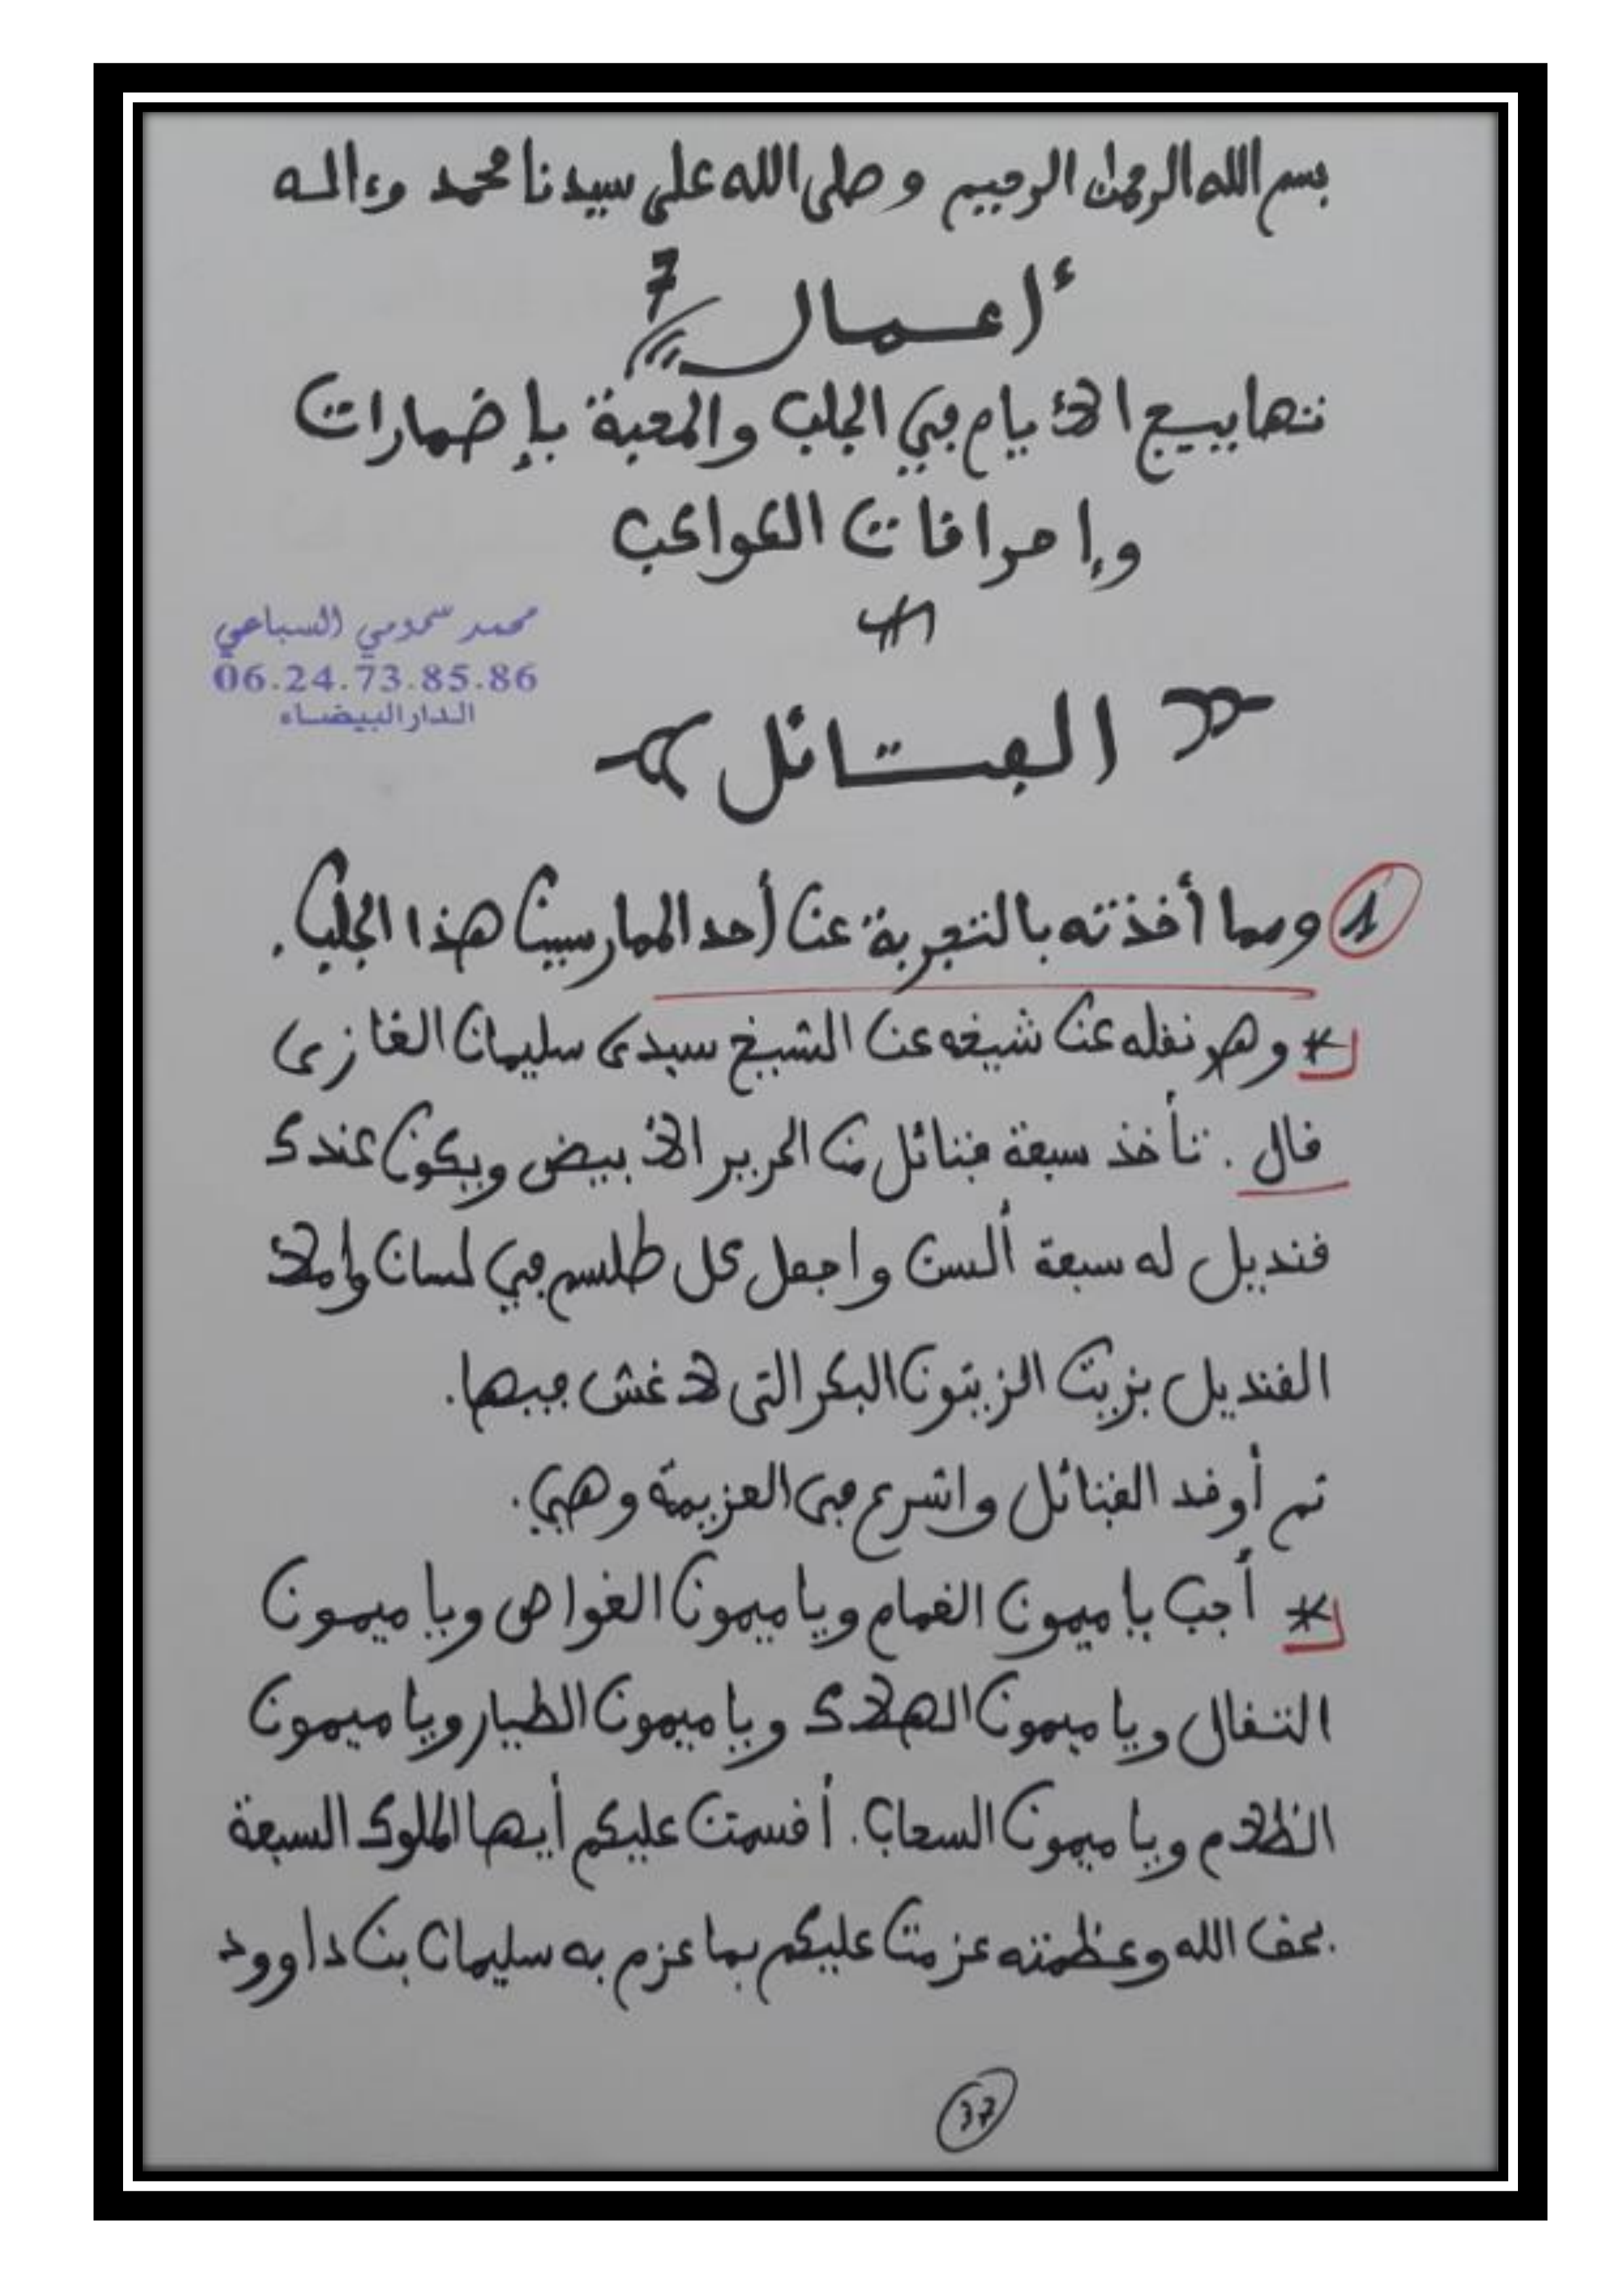 بسم الله الرحمن الرحيم وصلى الله على سيدنا محمد وءاله
أعمال 7
تهاييج الأيام في الجلب والمحبة بإضمارات
وإحراقات الكواكب
محمد سمومي السباعي
06.24.73.85.86
الدار البيضاء
الفتائل
1 ومما أخذته بالتجربة عن أحد الممارسين هذا الجلب.
* وهو نقله عن شيخه عن الشيخ سيدي سليمان الغازي
قال. تأخذ سبعة فتائل من الحرير الأبيض ويكون عندك
قنديل له سبعة ألسن واجعل كل طلسم في لسان واملأ
القنديل بزيت الزيتون البكر التي لا غش فيها.
تم أوقد الفتائل واشرع في العزيمة وهي.
* أجب يا ميمون الغمام ويا ميمون الغواص ويا ميمون
النقال ويا ميمون الهلادى ويا ميمون الطيار ويا ميمون
الظلام ويا ميمون السحاب. أقسمت عليكم أيها الملوك السبعة
بحق الله وعظمته عزمت عليكم بما عزم به سليمان بن داوود
37